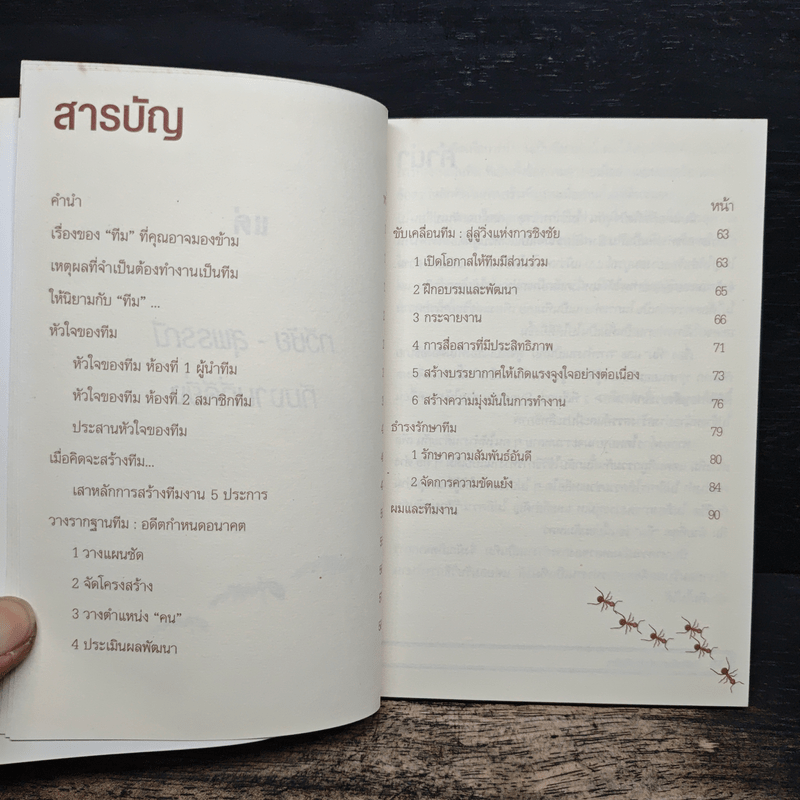 สารบัญ
คำนำ
เรื่องของ “ทีม” ที่คุณอาจมองข้าม
เหตุผลที่จำเป็นต้องทำงานเป็นทีม
ให้นิยามกับ “ทีม” ...
หัวใจของทีม
หัวใจของทีม ห้องที่ 1 ผู้นำทีม
หัวใจของทีม ห้องที่ 2 สมาชิกทีม
ประสานหัวใจของทีม
เมื่อคิดจะสร้างทีม...
เสาหลักการสร้างทีมงาน 5 ประการ
วางรากฐานทีม : อดีตกำหนดอนาคต
1 วางแผนชัด
2 จัดโครงสร้าง
3 วางตำแหน่ง “คน”
4 ประเมินผลพัฒนา
หน้า
ขับเคลื่อนทีม : สู่ลู่วิ่งแห่งการชิงชัย 63
1 เปิดโอกาสให้ทีมมีส่วนร่วม 63
2 ฝึกอบรมและพัฒนา 65
3 กระจายงาน 66
4 การสื่อสารที่มีประสิทธิภาพ 71
5 สร้างบรรยากาศให้เกิดแรงจูงใจอย่างต่อเนื่อง 73
6 สร้างความมุ่งมั่นในการทำงาน 76
ธำรงรักษาทีม 79
1 รักษาความสัมพันธ์อันดี 80
2 จัดการความขัดแย้ง 84
ผมและทีมงาน 90